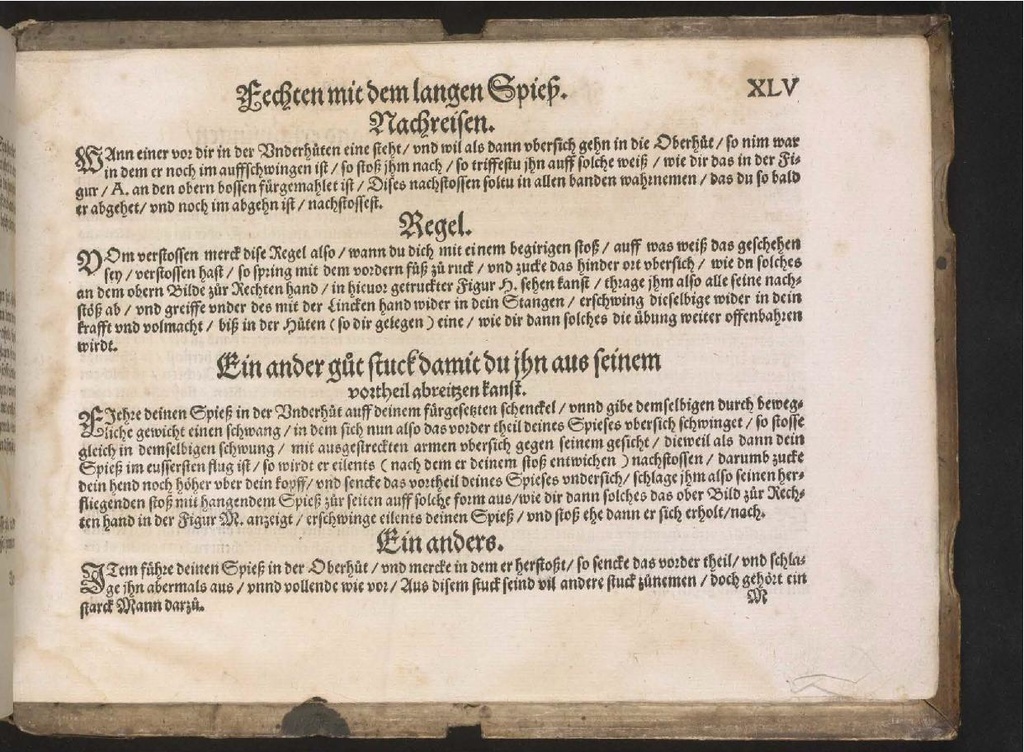 Fechten mit dem langen Spieß. XLV
Nachreisen.
WAnn einer vor dir in der Vnderhüten eine steht / vnd wil als dann vbersich gehn in die Oberhůt / so nim war
in dem er noch im auffschwingen ist / so stoß jhm nach / so triffestu jhn auff solche weiß / wie dir das in der Fi-
gur / A. an den obern bossen fürgemahlet ist / Dises nachstossen soltu in allen banden wahrnemen / das du so bald
er abgehet / vnd noch im abgehn ist / nachstossest.
Regel.
VOm verstossen merck dise Regel also / wann du dich mit einem begirigen stoß / auff was weiß das geschehen
sey / verstossen hast / so spring mit dem vordern fůß zů ruck / vnd zucke das hinder ort vbersich / wie du solches
an dem obern Bilde zůr Rechten hand / in hievor getruckter Figur H. sehen kanst / thrage jhm also alle seine nach-
stöß ab / vnd greiffe vnder des mit der Lincken hand wider in dein Stangen / erschwing dieselbige wider in dein
krafft vnd volmacht / biß in der Hüten ( so dir gelegen ) eine / wie dir dann solches die übung weiter offenbahren
wirdt.
Ein ander gůt stuck damit du jhn aus seinem
vortheil abreitzen kanst.
FJehre deinen Spieß in der Vnderhůt auff deinem fürgesetzten schenckel / vnnd gibe demselbigen durch beweg-
liche gewicht einen schwang / in dem sich nun also das vorder theil deines Spieses vbersich schwinget / so stosse
gleich in demselbigen schwung / mit ausgestreckten armen vbersich gegen seinem gesicht / dieweil als dann dein
Spieß im eussersten flug ist / so wirdt er eilents ( nach dem er deinem stoß entwichen ) nachstossen / darumb zucke
dein hend noch höher vber dein kopff / vnd sencke das vortheil deines Spieses vndersich / schlage jhm also seinen her-
fliegenden stoß mit hangendem Spieß zůr seiten auff solche form aus / wie dir dann solches das ober Bild zůr Rech-
ten hand in der Figur M. anzeigt / erschwinge eilents deinen Spieß / vnd stoß ehe dann er sich erholt / nach.
Ein anders.
JTem führe deinen Spieß in der Oberhůt / vnd mercke in dem er herstoßt / so sencke das vorder theil / vnd schla-
ge jhn abermals aus / vnnd vollende wie vor / Aus disem stuck seind vil andere stuck zůnemen / doch gehört ein
starck Mann darzů.
M